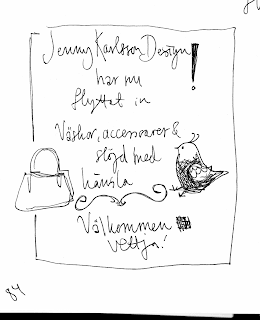 Jenny Karlsson Design!
har nu
flyttat in
Väskor, accessoarer &
slöjd med
känsla
Välkommen
84